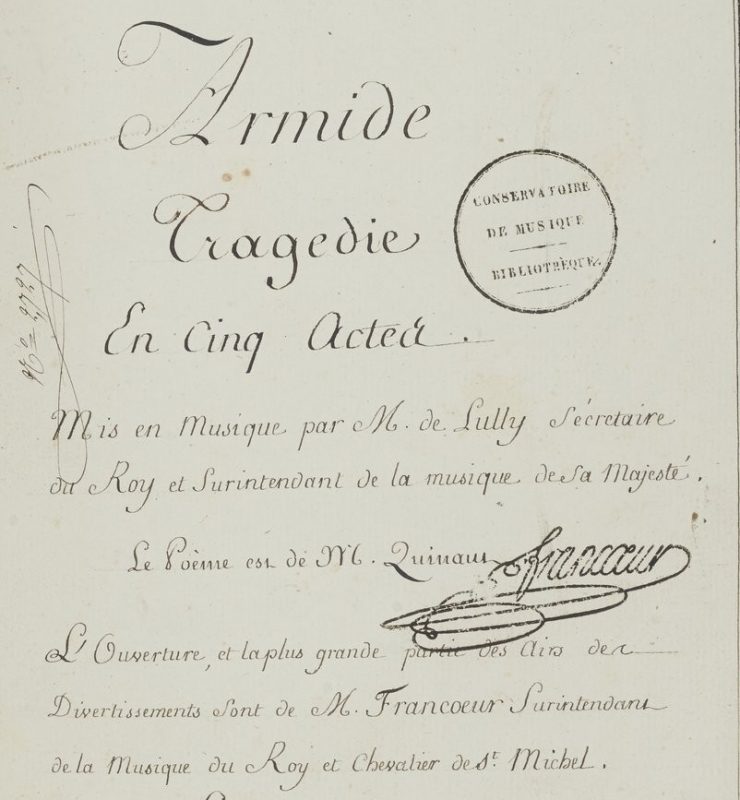 Armide
CONSERVATOIRE
DE MUSIQUE
BIBLIOTHÈQUE.
Tragedie
En Cinq Actes.
Mis en Musique par M. de Lully Sécretaire
du Roy et Surintendant de la musique de Sa Majesté.
Le Poème est de M. Quinaut
Francœur
L'Ouverture, et la plus grande partie des Airs des
Divertissements Sont de M. Francoeur Surintendant
de la Musique du Roy et Chevalier de St. Michel.